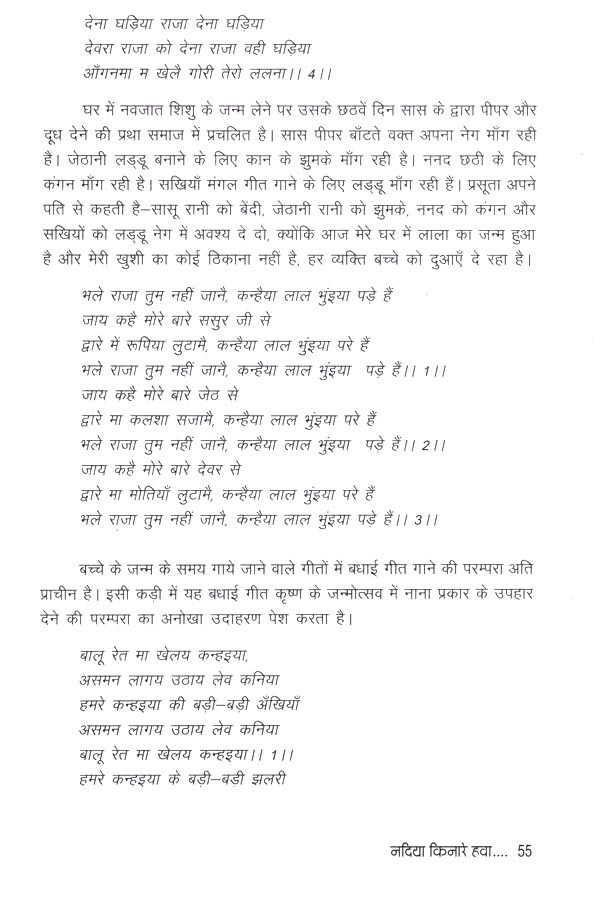 देना घड़िया राजा देना घड़िया
देवरा राजा को देना राजा वही घड़िया
आँगनमा म खेलै गोरी तेरो ललना।। 4।।
घर में नवजात शिशु के जन्म लेने पर उसके छठवें दिन सास के द्वारा पीपर और
दूध देने की प्रथा समाज में प्रचलित है। सास पीपर बाँटते वक्त अपना नेग माँग रही
है। जेठानी लड्डू बनाने के लिए कान के झुमके माँग रही है। ननद छठी के लिए
कंगन माँग रही है। सखियाँ मंगल गीत गाने के लिए लड्डू माँग रही हैं। प्रसूता अपने
पति से कहती है–सासू रानी को बेंदी, जेठानी रानी को झुमके, ननद को कंगन और
सखियों को लड्डू नेग में अवश्य दे दो, क्योंकि आज मेरे घर में लाला का जन्म हुआ
है और मेरी खुशी का कोई ठिकाना नहीं है, हर व्यक्ति बच्चे को दुआएँ दे रहा है।
भले राजा तुम नहीं जानै, कन्हैया लाल भुंइया पड़े हैं
जाय कहै मोरे बारे ससुर जी से
द्वारे में रूपिया लुटामै, कन्हैया लाल भुंइया परे हैं
भले राजा तुम नहीं जानै, कन्हैया लाल भुंइया पड़े हैं।। 1।।
जाय कहै मोरे बारे जेठ से
द्वारे मा कलशा सजामै, कन्हैया लाल भुंइया परे हैं
भले राजा तुम नहीं जानै, कन्हैया लाल भुंइया पड़े हैं।। 2।।
जाय कहै मोरे बारे देवर से
द्वारे मा मोतियाँ लुटामै, कन्हैया लाल भुंइया परे हैं
भले राजा तुम नहीं जानै, कन्हैया लाल भुंइया पड़े हैं।। 3।।
बच्चे के जन्म के समय गाये जाने वाले गीतों में बधाई गीत गाने की परम्परा अति
प्राचीन है। इसी कड़ी में यह बधाई गीत कृष्ण के जन्मोत्सव में नाना प्रकार के उपहार
देने की परम्परा का अनोखा उदाहरण पेश करता है।
बालू रेत मा खेलय कन्हइया,
असमन लागय उठाय लेव कनिया
हमरे कन्हइया की बड़ी–बड़ी अँखियाँ
असमन लागय उठाय लेव कनिया
बालू रेत मा खेलय कन्हइया।। 1।।
हमरे कन्हइया के बड़ी–बड़ी झलरी
नदिया किनारे हवा.... 55